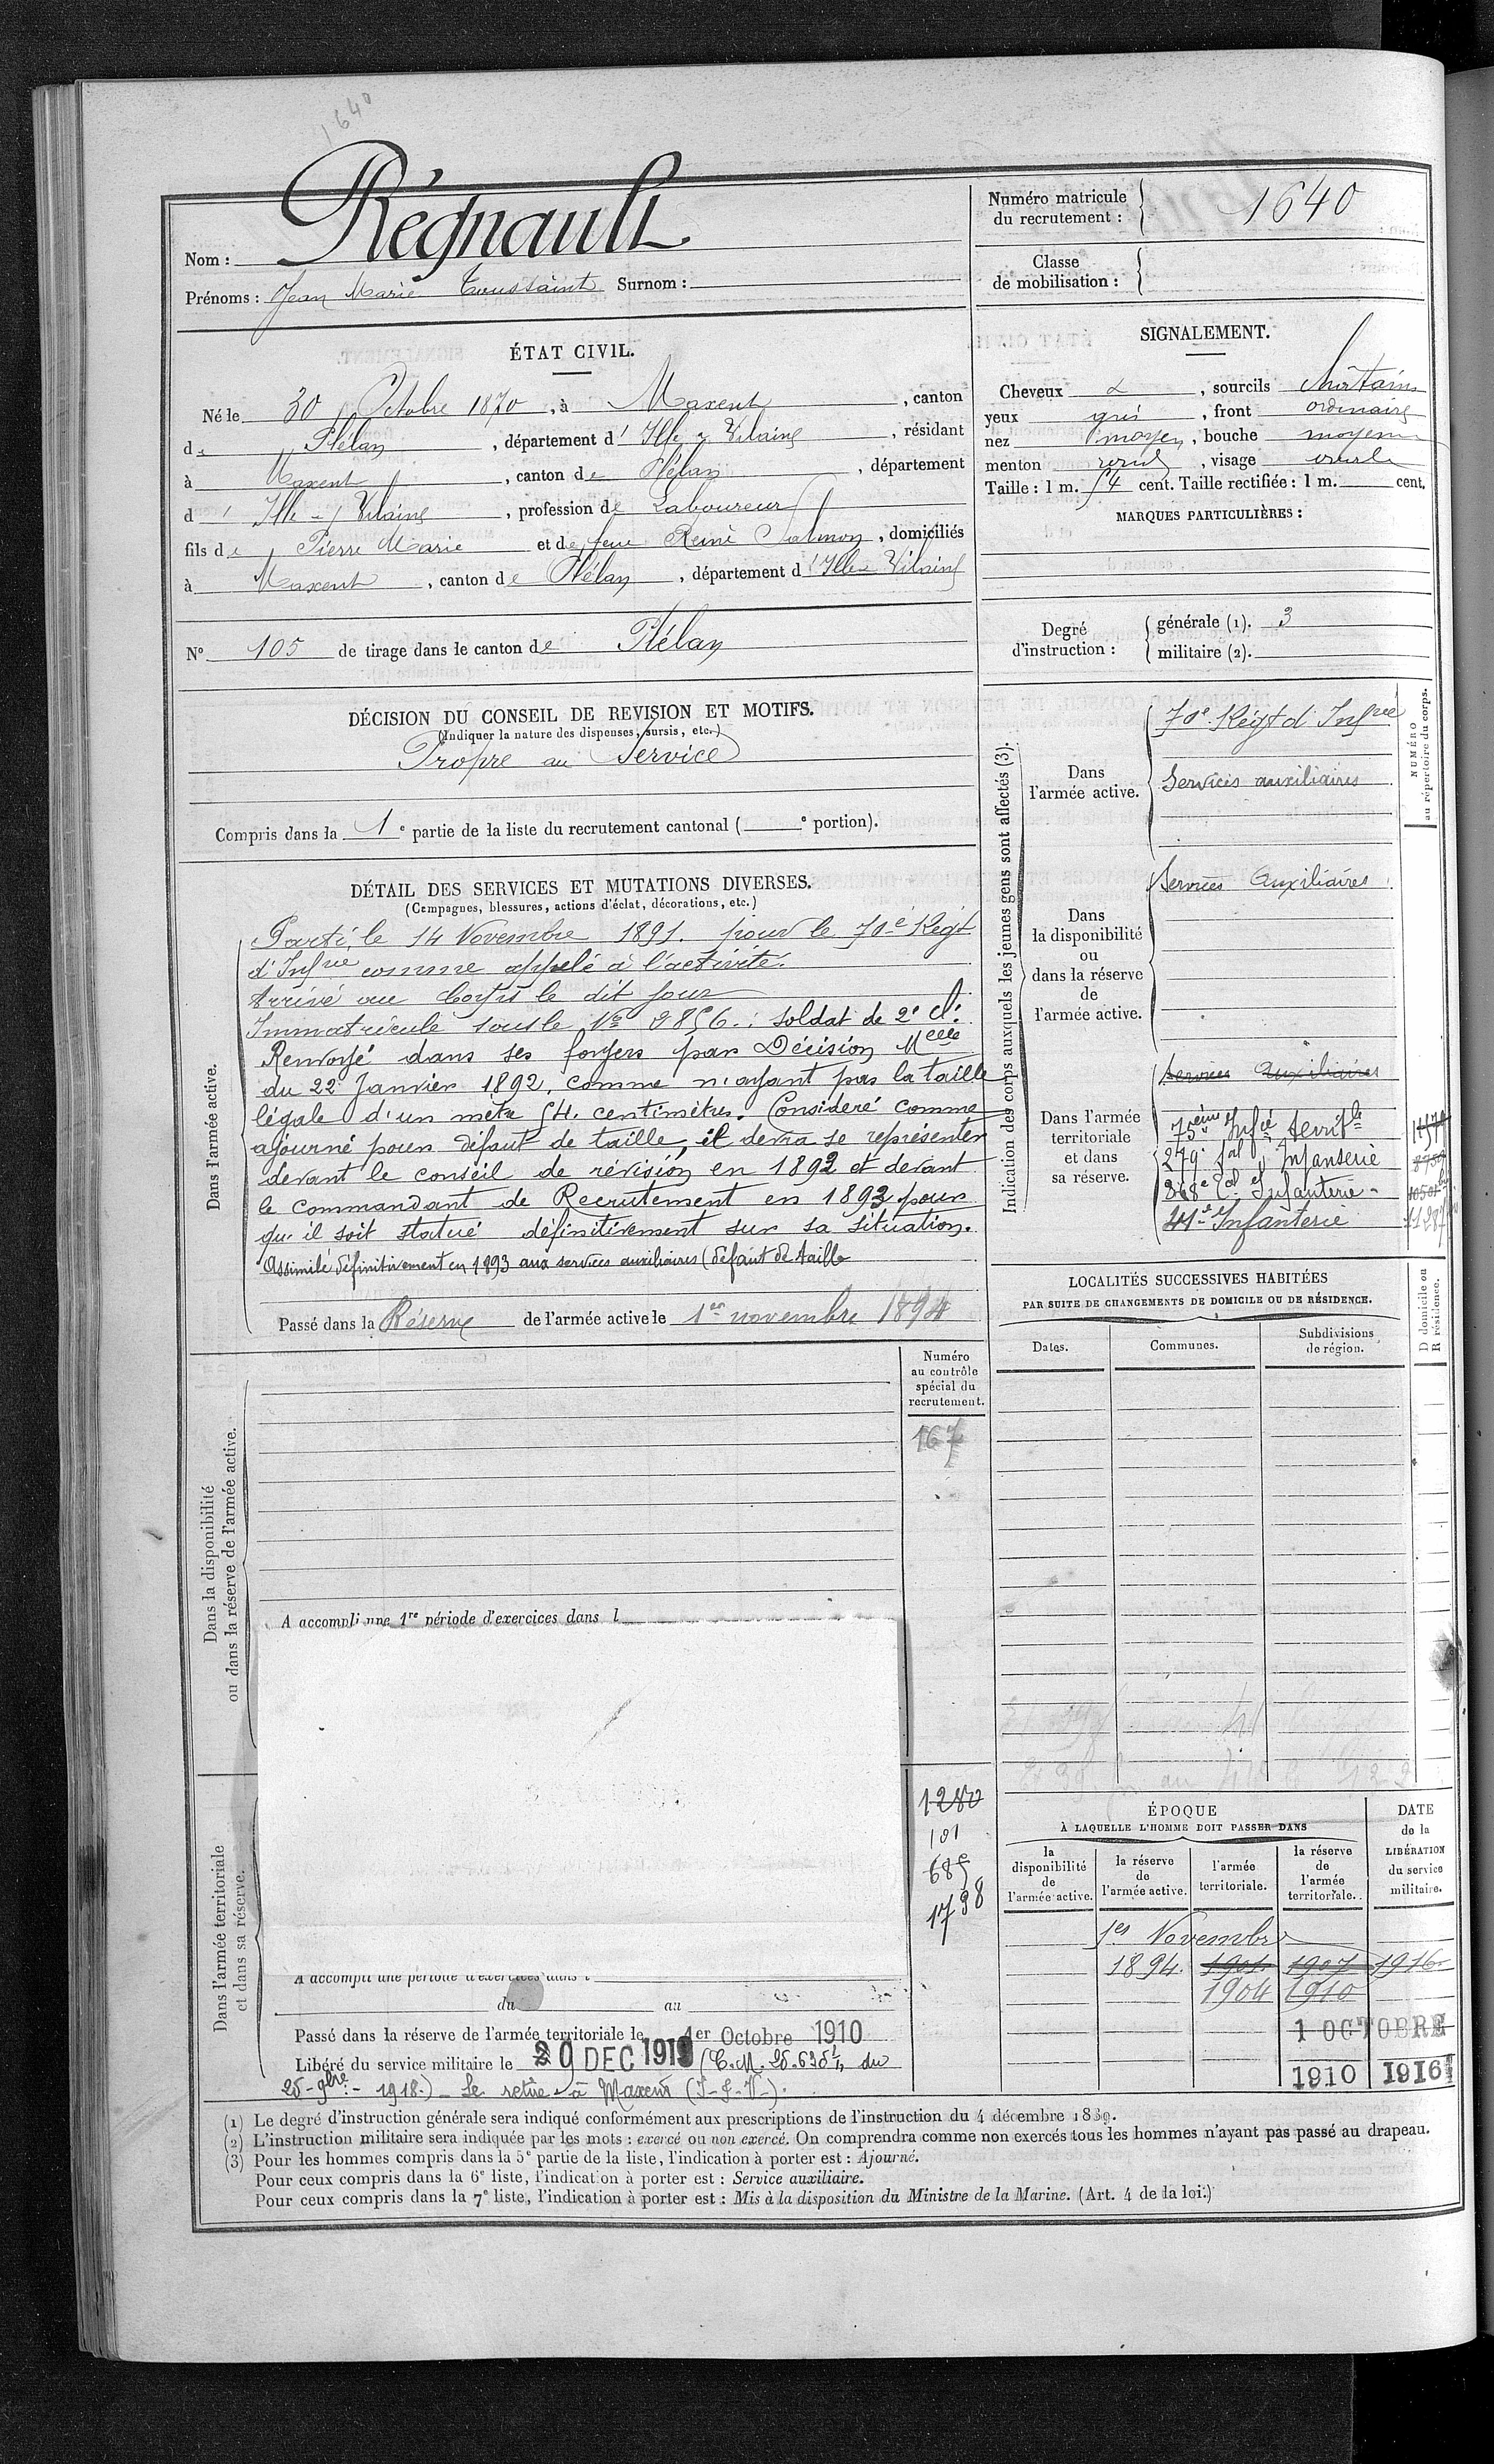 1640
Nom : Régnault
Prénoms : Jean Marie Toussaint Surnom :
Numéro matricule
du recrutement : 1640
Classe
de mobilisation :
ÉTAT CIVIL.
Né le 30 Octobre 1870, à Maxent, canton
de Plélan, département d' Ille & Vilaine, résidant
à Maxent, canton de Plélan, département
d' Ille & Vilaine, profession de Laboureur
fils de Pierre Marie et de feue Reine Salmon, domiciliés
à Maxent, canton de Plélan, département d' Ille & Vilaine
N° 105 de tirage dans le canton de Plélan
SIGNALEMENT.
Cheveux &, sourcils châtains
yeux gris, front ordinaire
nez moyen, bouche moyenne
menton rond, visage ovale
Taille : 1 m. 54 cent. Taille rectifiée : 1 m. cent.
MARQUES PARTICULIÈRES :
Degré
d'instruction :
générale (1). 3
militaire (2).
DÉCISION DU CONSEIL DE REVISION ET MOTIFS.
(Indiquer la nature des dispenses, sursis, etc.)
Propre au Service
Compris dans la 1e partie de la liste du recrutement cantonal ( e portion).
DÉTAIL DES SERVICES ET MUTATIONS DIVERSES.
(Campagnes, blessures, actions d'éclat, décorations, etc.)
Dans l'armée active.
Parti, le 14 Novembre 1891. pour le 70e Régt
d'Infrie comme appelé à l'activité.
Arrivé au Corps le dit jour
Immatriculé sous le No 2856. : soldat de 2e cl.
Renvoyé dans ses foyers par Décision Melle
du 22 Janvier 1892, comme n'ayant pas la taille
légale d'un mètre 54. centimètres. Considéré comme
ajourné pour défaut de taille, il devra se représenter
devant le conseil de révision en 1892 et devant
le commandant de Recrutement en 1893 pour
qu'il soit statué définitivement sur sa situation.
Assimilé définitivement en 1893 aux services auxiliaires (défaut de taille
Passé dans la Réserve de l'armée active le 1er novembre 1894
Indication des corps auxquels les jeunes gens sont affectés (3).
NUMÉRO
au répertoire du corps.
Dans
l'armée active.
70e Régt d'Infrie
Services auxiliaires
Dans
la disponibilité
ou
dans la réserve
de
l'armée active.
Services Auxiliaires
Dans l'armée
territoriale
et dans
sa réserve.
Services Auxiliaires
75ème Infie territle
279e tal d'Infanterie
368e tal d'Infanterie
41e Infanterie
LOCALITÉS SUCCESSIVES HABITÉES
PAR SUITE DE CHANGEMENTS DE DOMICILE OU DE RÉSIDENCE.
Dates.
Communes.
Subdivisions
de région.
D domicile ou
R résidence.
Dans la disponibilité
ou dans la réserve de l'armée active.
Numéro
au contrôle
spécial du
recrutement.
167
A accompli une 1re période d'exercices dans l
Dans l'armée territoriale
et dans sa réserve.
1280
101
685
1798
A accompli une période d'exercices dans l
du au
Passé dans la réserve de l'armée territoriale le 1er Octobre 1910
Libéré du service militaire le 29 DEC 1918 (C.M. 25.635 1/1 du
25-9bre - 1918.) - Se retire à Maxent (I-&-V-).
ÉPOQUE
À LAQUELLE L'HOMME DOIT PASSER DANS
DATE
de la
LIBÉRATION
du service
militaire.
la
disponibilité
de
l'armée active.
la réserve
de
l'armée active.
l'armée
territoriale.
la réserve
de
l'armée
territoriale.
1er Novembre
1894. 1901. 1907 1916.
1904 1910
1 OCTOBRE
1910 1916
(1) Le degré d'instruction générale sera indiqué conformément aux prescriptions de l'instruction du 4 décembre 1889.
(2) L'instruction militaire sera indiquée par les mots : exercé ou non exercé. On comprendra comme non exercés tous les hommes n'ayant pas passé au drapeau.
(3) Pour les hommes compris dans la 5e partie de la liste, l'indication à porter est : Ajourné.
Pour ceux compris dans la 6e liste, l'indication à porter est : Service auxiliaire.
Pour ceux compris dans la 7e liste, l'indication à porter est : Mis à la disposition du Ministre de la Marine. (Art. 4 de la loi.)